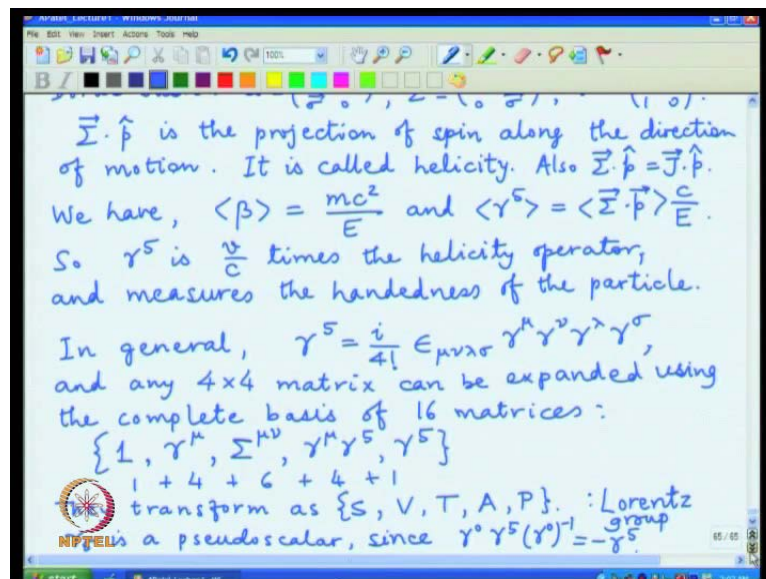 APatel_Lecture1 - Windows Journal
File Edit View Insert Actions Tools Help
100%
B I
Σ⃗·p̂ is the projection of spin along the direction
of motion. It is called helicity. Also Σ⃗·p̂ = J⃗·p̂.
We have, <β> = mc²/E and <γ⁵> = <Σ⃗·p⃗> c/E.
So γ⁵ is v/c times the helicity operator,
and measures the handedness of the particle.
In general, γ⁵ = i/4! ε_μνλσ γ^μ γ^ν γ^λ γ^σ,
and any 4×4 matrix can be expanded using
the complete basis of 16 matrices :
{1, γ^μ, Σ^μν, γ^μγ⁵, γ⁵}
1 + 4 + 6 + 4 + 1
transform as {S, V, T, A, P}. : Lorentz group
is a pseudoscalar, since γ⁰ γ⁵ (γ⁰)⁻¹ = -γ⁵.
NPTEL
65 / 65
start